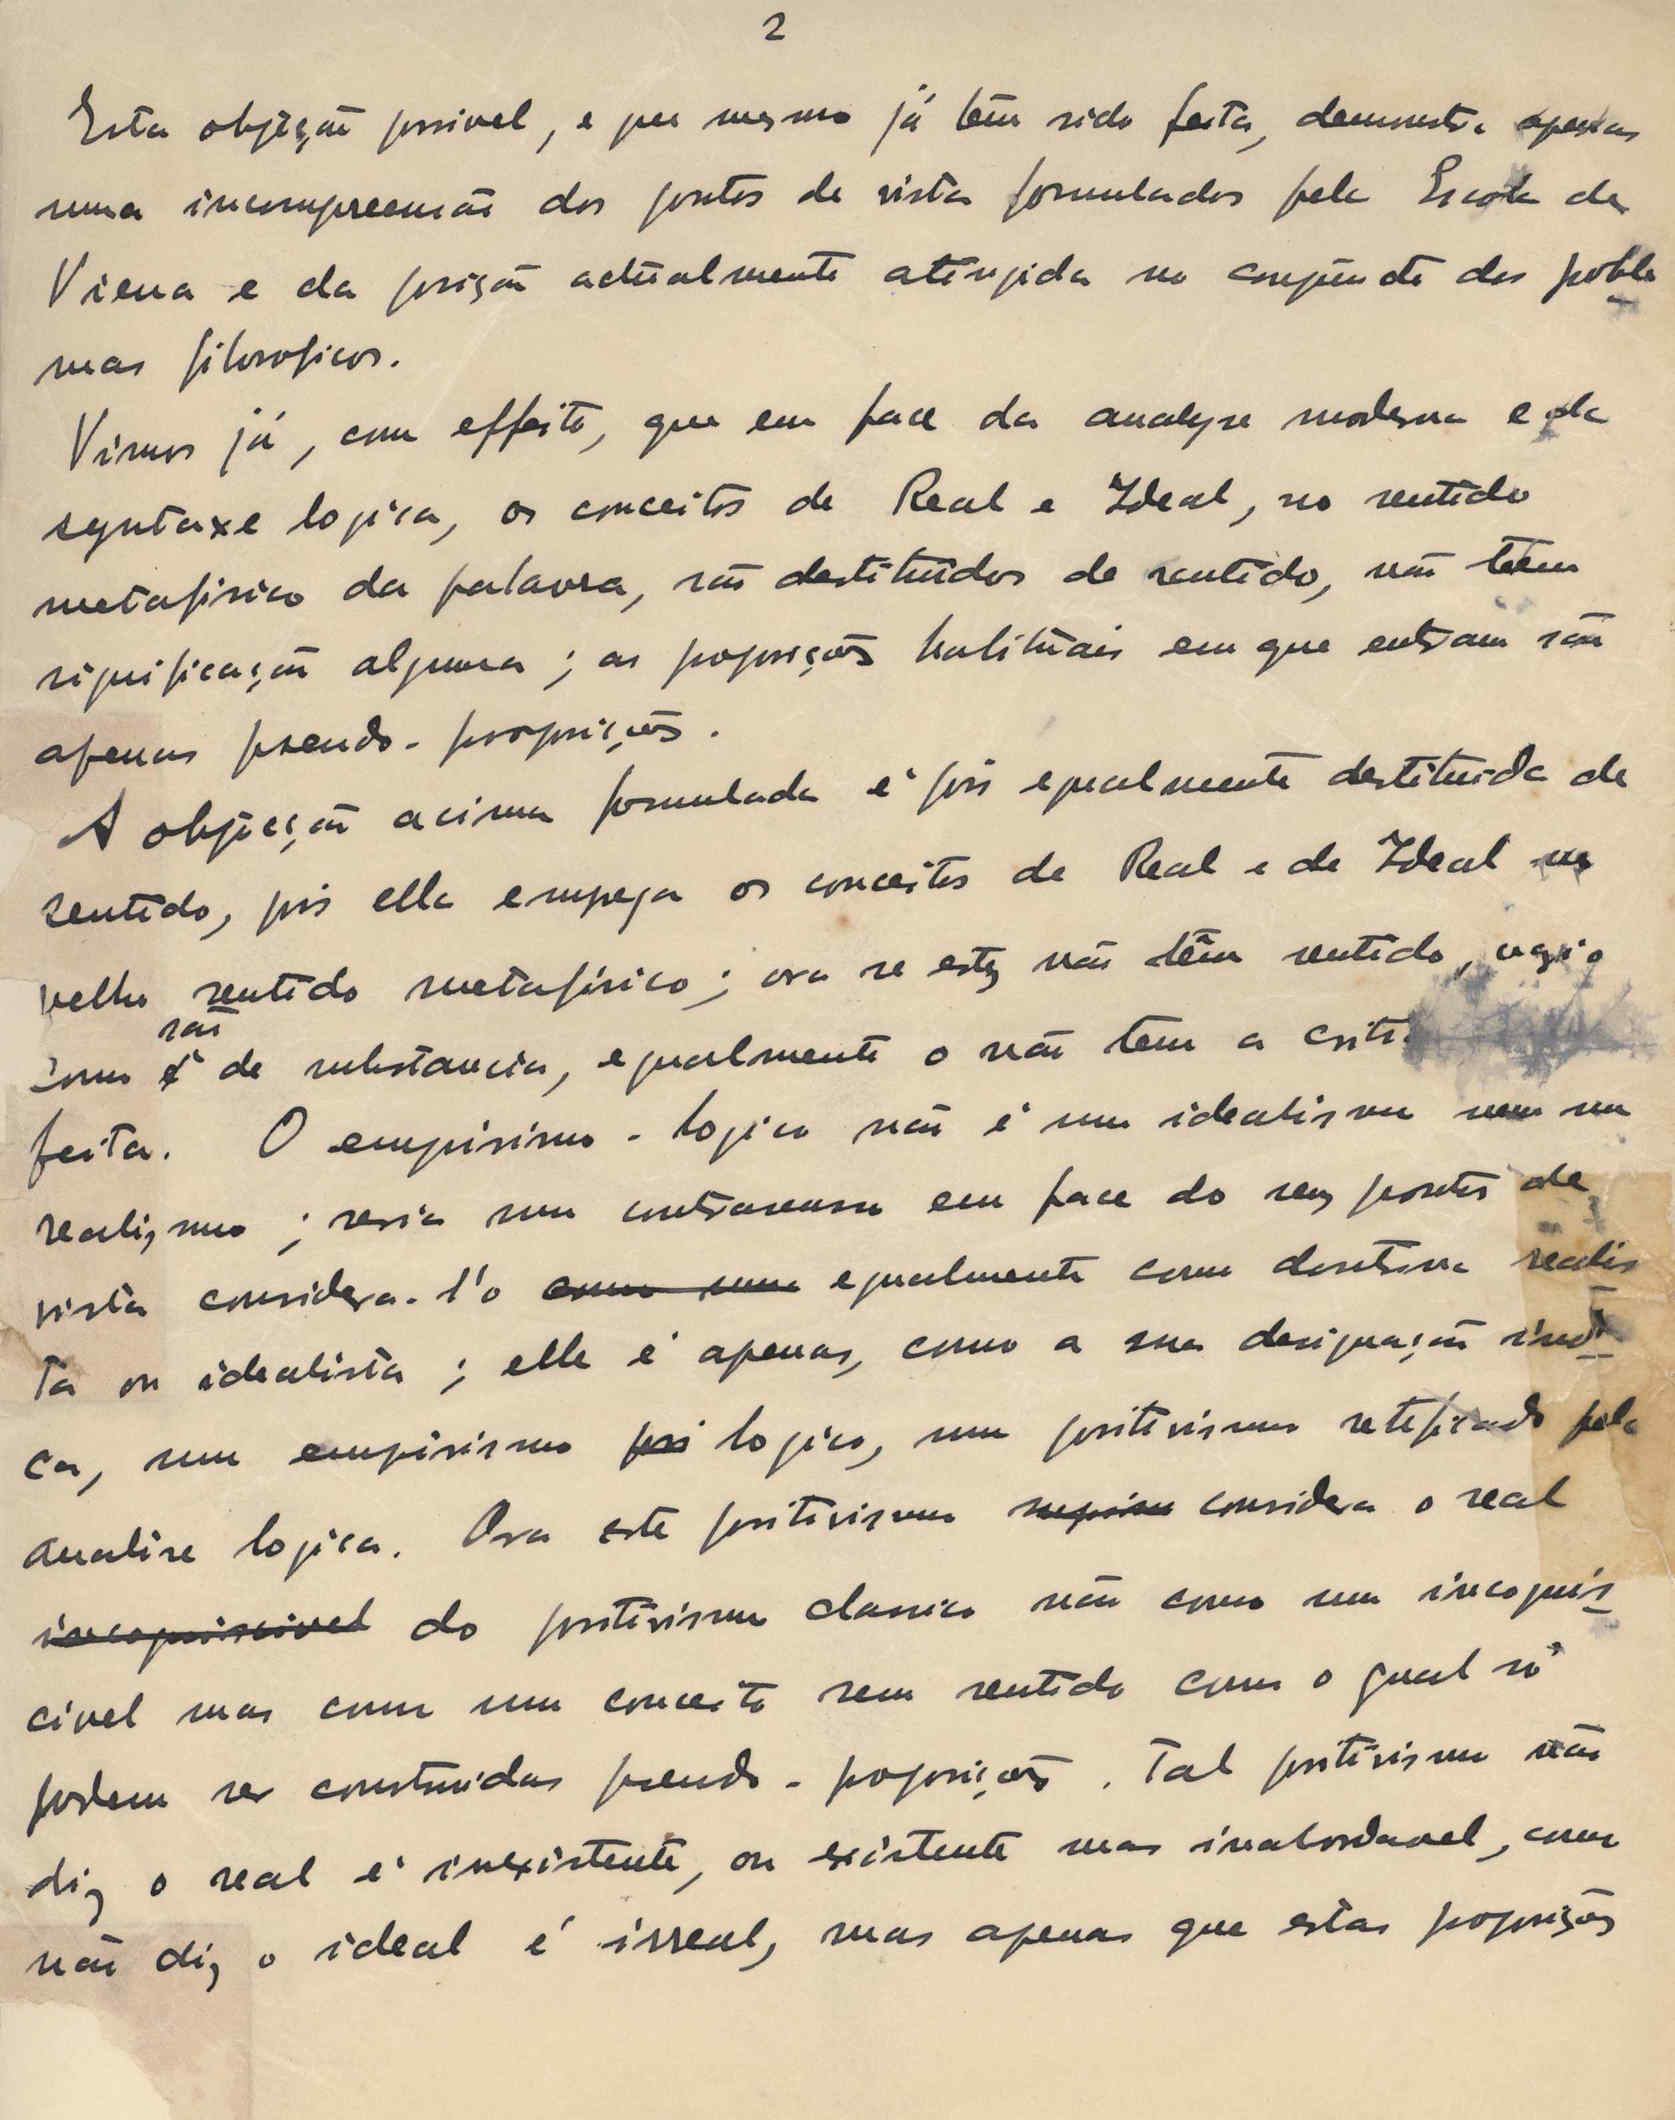 2
Esta objeção possivel, e que mesmo já têm sido feita, demonstra apenas
uma incompreensão dos pontos de vista formulados pela Escola de
Viena e da posição actualmente atingida no conjuncto dos proble
mas filosoficos.
Vimos já, com effeito, que em face da analyse moderna e da
syntaxe logica, os conceitos de Real e Ideal, no sentido
metafisico da palavra, são destituidos de sentido, não têem
significação alguma; as proposições habituais em que entram são
apenas pseudo-proposições.
A objecção acima formulada é pois egualmente destituida de
sentido, pois ella emprega os conceitos de Real e de Ideal no
velho sentido metafisico; ora se estes não têm sentido,
são
como é de substancia, egualmente o não tem a
feita. O empirismo-logico não é um idealismo nem um
realismo; seria um contrasenso em face do seu ponto de
vista considera-l'o como uma egualmente como doutrina realis
ta ou idealista; elle é apenas, como a sua designação indi-
ca, um empirismo poi logico, um positivismo retificado pela
analise logica. Ora este positivismo considera o real
incognoscivel do positivismo classico não como um incognos-
civel mas como um conceito sem sentido com o qual só
podem ser construidas pseudo-proposições. Tal positivismo não
diz o real é inexistente, ou existente mas inabordavel, como
não diz o ideal é irreal, mas apenas que estas proposições